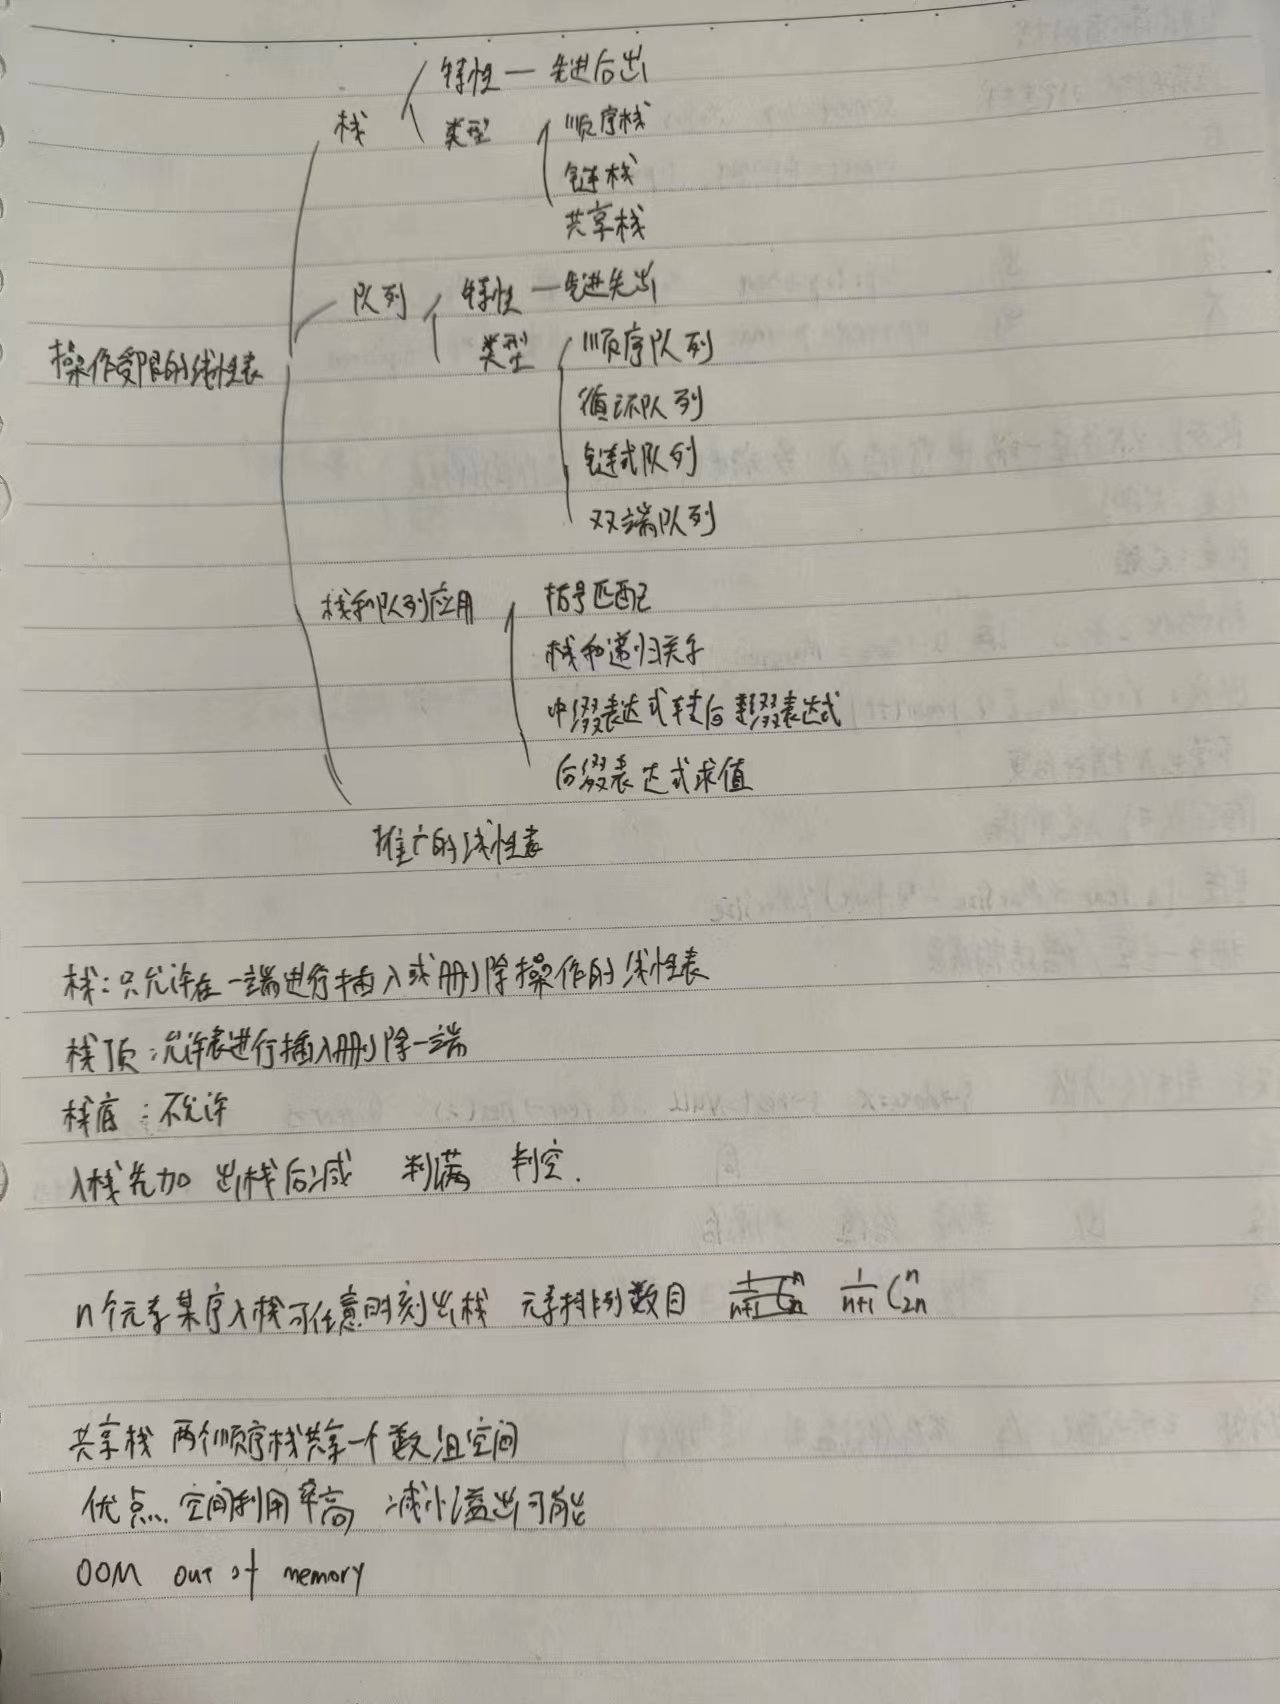 栈 特性 — 先进后出
类型 顺序栈
链栈
共享栈
队列 特性 — 先进先出
操作受限的线性表
类型 顺序队列
循环队列
链式队列
双端队列
栈和队列应用 括号匹配
栈和递归关系
中缀表达式转后缀表达式
后缀表达式求值
推广的线性表
栈:只允许在一端进行插入或删除操作的线性表
栈顶:允许表进行插入删除一端
栈底:不允许
入栈先加 出栈后减 判满 判空.
n个元素某序入栈可任意时刻出栈 元素排列数目 1/(n+1) C_{2n}^{n}
共享栈 两个顺序栈共享一个数组空间
优点. 空间利用率高 减小溢出可能
OOM out of memory